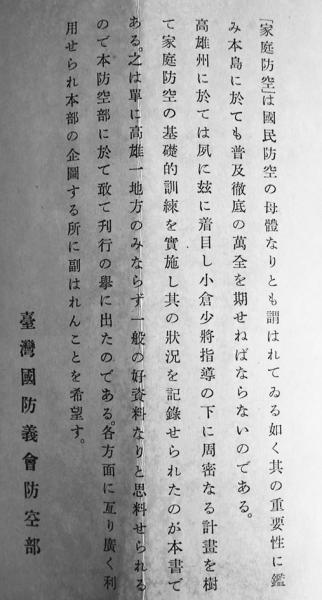 「家庭防空」は國民防空の母體なりとも謂はれてゐる如く其の重要性に鑑
み本島に於ても普及徹底の萬全を期せねばならないのである。
高雄州に於ては夙に玆に着目し小倉少將指導の下に周密なる計畫を樹
て家庭防空の基礎的訓練を實施し其の狀況を記錄せられたのが本書で
ある。之は單に高雄一地方のみならず一般の好資料なりと思料せられる
ので本防空部に於て敢て刊行の擧に出たのである。各方面に亙り廣く利
用せられ本部の企圖する所に副はれんことを希望す。
臺灣國防義會防空部